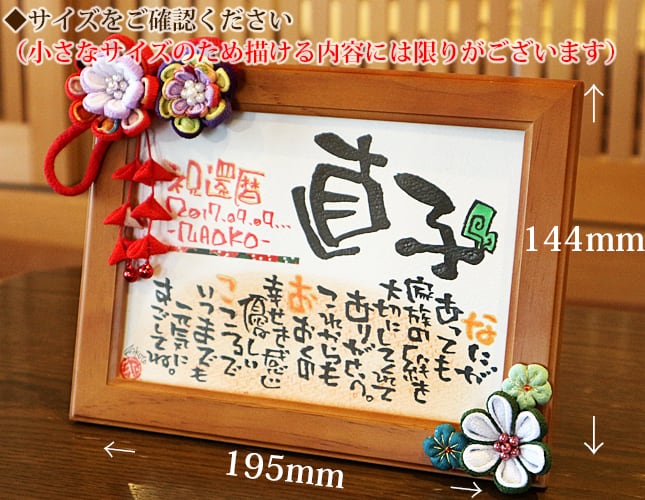 ◆サイズをご確認ください
（小さなサイズのため描ける内容には限りがございます）
祝還暦
2017.09.09...
-NAOKO-
直子
なにが
あっても
家族の絆を
大切にしてくれて
ありがとう。
これからも
おおくの
幸せを感じ
優しい
こころで
いつまでも
元気に
すごしてね。
144mm
195mm